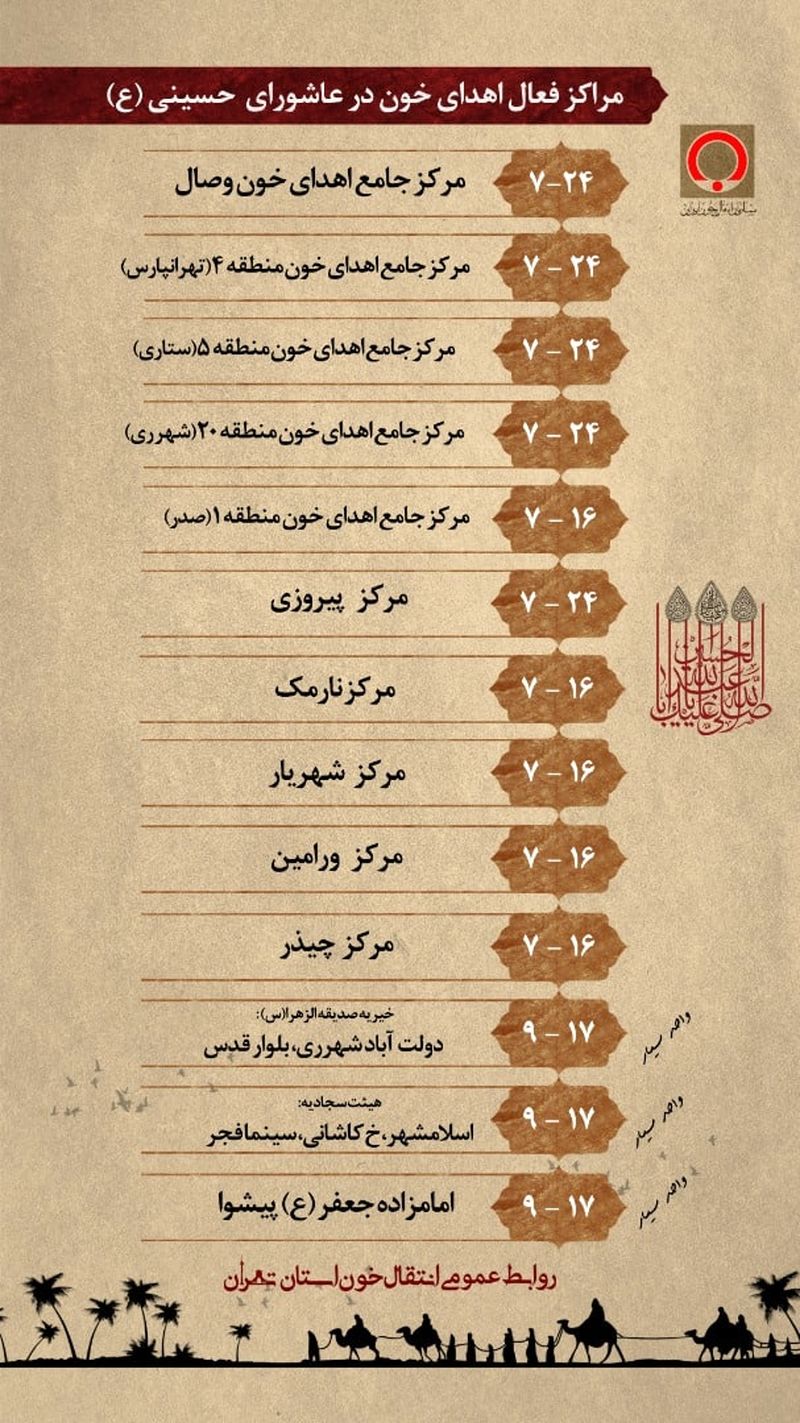 مراکز فعال اهدای خون در عاشورای حسینی (ع)
۷-۲۴ مرکز جامع اهدای خون وصال
۷ - ۲۴ مرکز جامع اهدای خون منطقه ۴ (تهرانپارس)
۷ - ۲۴ مرکز جامع اهدای خون منطقه ۵ (ستاری)
۷ - ۲۴ مرکز جامع اهدای خون منطقه ۲۰ (شهرری)
۷ - ۱۶ مرکز جامع اهدای خون منطقه ۱ (صدر)
۷ - ۲۴ مرکز پیروزی
۷ - ۱۶ مرکز نارمک
۷ - ۱۶ مرکز شهریار
۷ - ۱۶ مرکز ورامین
۷ - ۱۶ مرکز چیذر
خیریه صدیقه الزهرا(س):
واحد سیار ۹ - ۱۷ دولت آباد شهرری، بلوار قدس
هیئت سجادیه:
واحد سیار ۹ - ۱۷ اسلامشهر، خ کاشانی، سینما فجر
واحد سیار ۹ - ۱۷ امامزاده جعفر (ع) پیشوا
صلی الله علیک یا اباعبدالله الحسین
روابط عمومی انتقال خون استان تهران